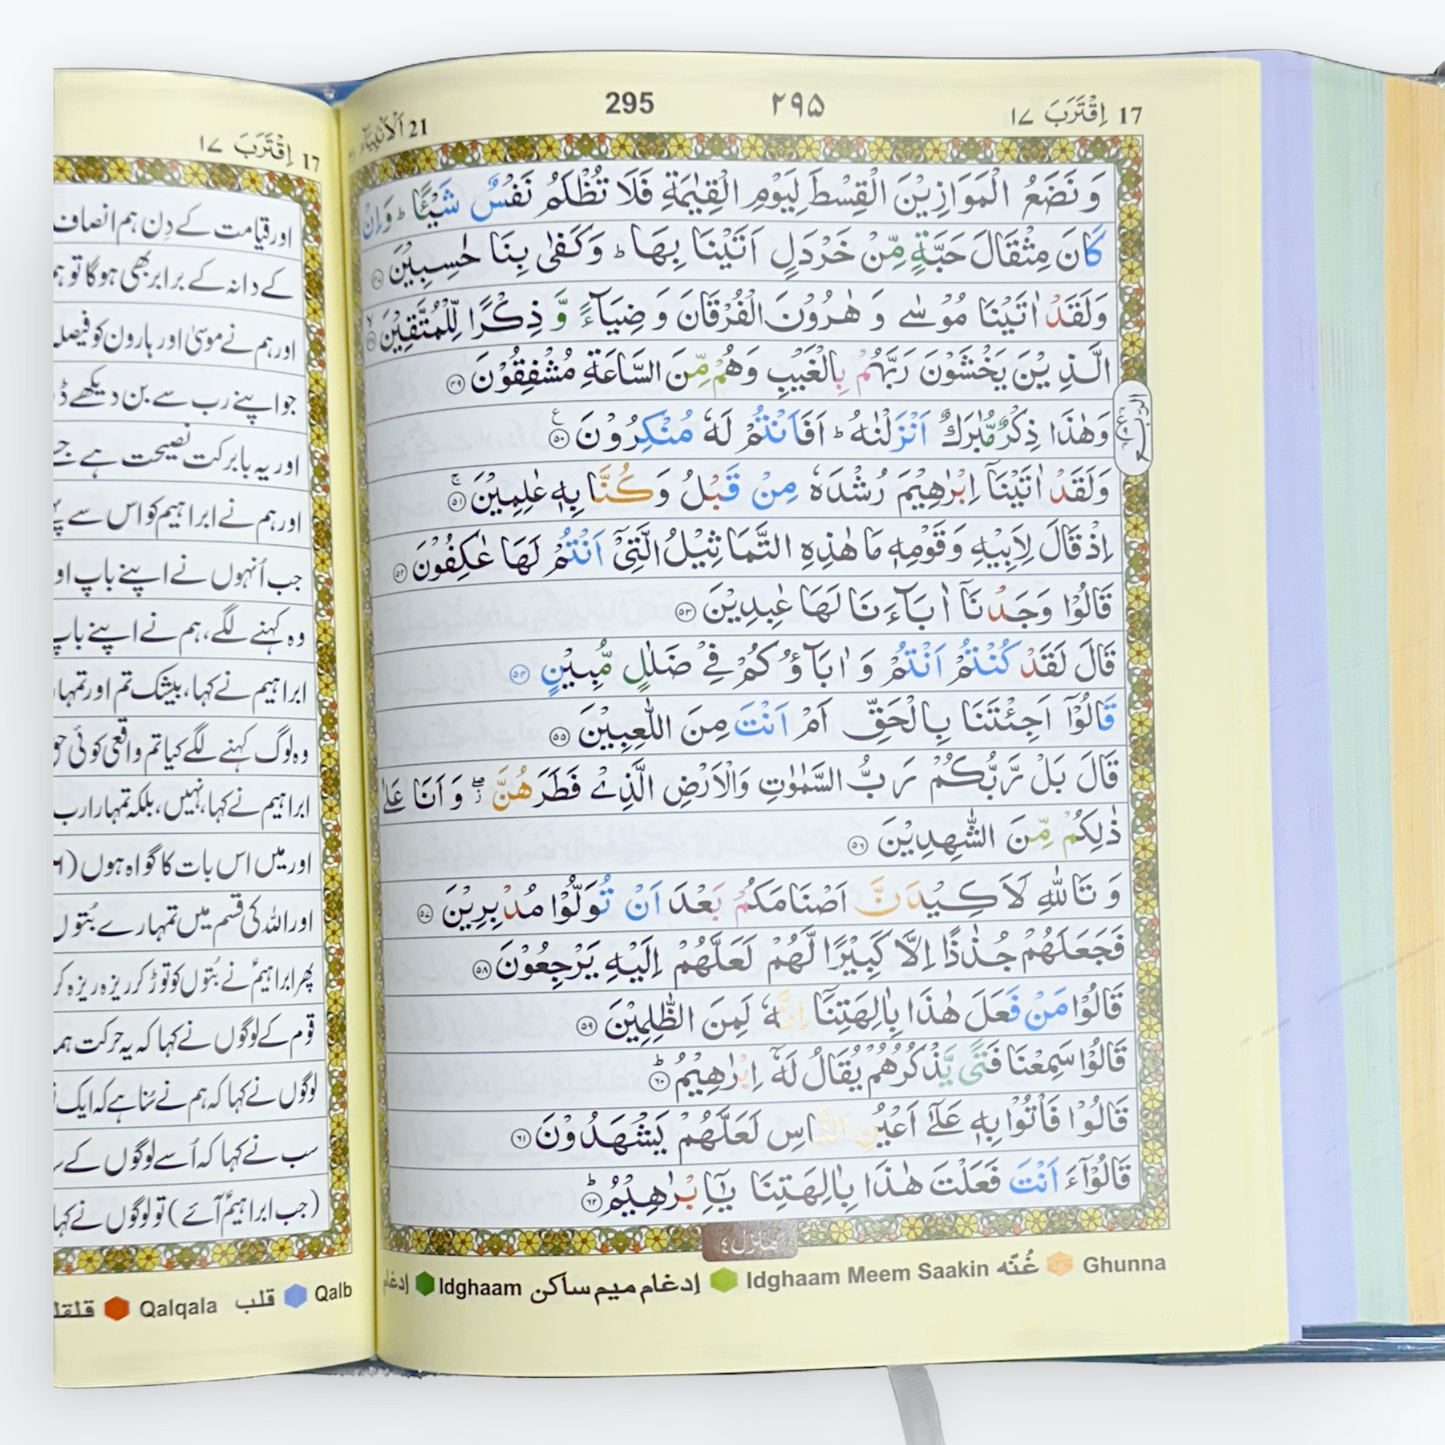 17 اِقْتَرَبَ ١٧
295
٢٩٥
21 اَلْاَنْۢبِيَآء ٢١
وَنَضَعُ الْمَوَازِيْنَ الْقِسْطَ لِيَوْمِ الْقِيٰمَةِ فَلَا تُظْلَمُ نَفْسٌ شَيْئًا ؕ وَاِنْ
كَانَ مِثْقَالَ حَبَّةٍ مِّنْ خَرْدَلٍ اَتَيْنَا بِهَا ؕ وَكَفٰى بِنَا حٰسِبِيْنَ ﴿٤٧﴾
وَلَقَدْ اٰتَيْنَا مُوْسٰى وَ هٰرُوْنَ الْفُرْقَانَ وَ ضِيَآءً وَّ ذِكْرًا لِّلْمُتَّقِيْنَ ۙ ﴿٤٨﴾
الَّذِيْنَ يَخْشَوْنَ رَبَّهُمْ بِالْغَيْبِ وَهُمْ مِّنَ السَّاعَةِ مُشْفِقُوْنَ ﴿٤٩﴾
وَهٰذَا ذِكْرٌ مُّبٰرَكٌ اَنْزَلْنٰهُ ؕ اَفَاَنْتُمْ لَهٗ مُنْكِرُوْنَ ﴿٥٠﴾
وَلَقَدْ اٰتَيْنَاۤ اِبْرٰهِيْمَ رُشْدَهٗ مِنْ قَبْلُ وَكُنَّا بِهٖ عٰلِمِيْنَ ۚ ﴿٥١﴾
اِذْ قَالَ لِاَبِيْهِ وَقَوْمِهٖ مَا هٰذِهِ التَّمَاثِيْلُ الَّتِيْۤ اَنْتُمْ لَهَا عٰكِفُوْنَ ﴿٥٢﴾
قَالُوْا وَجَدْنَاۤ اٰبَآءَنَا لَهَا عٰبِدِيْنَ ﴿٥٣﴾
قَالَ لَقَدْ كُنْتُمْ اَنْتُمْ وَ اٰبَآؤُكُمْ فِيْ ضَلٰلٍ مُّبِيْنٍ ﴿٥٤﴾
قَالُوْۤا اَجِئْتَنَا بِالْحَقِّ اَمْ اَنْتَ مِنَ اللّٰعِبِيْنَ ﴿٥٥﴾
قَالَ بَلْ رَّبُّكُمْ رَبُّ السَّمٰوٰتِ وَالْاَرْضِ الَّذِيْ فَطَرَهُنَّ ۖ وَ اَنَا عَلٰى
ذٰلِكُمْ مِّنَ الشّٰهِدِيْنَ ﴿٥٦﴾
وَ تَاللّٰهِ لَاَكِيْدَنَّ اَصْنَامَكُمْ بَعْدَ اَنْ تُوَلُّوْا مُدْبِرِيْنَ ﴿٥٧﴾
فَجَعَلَهُمْ جُذٰذًا اِلَّا كَبِيْرًا لَّهُمْ لَعَلَّهُمْ اِلَيْهِ يَرْجِعُوْنَ ﴿٥٨﴾
قَالُوْا مَنْ فَعَلَ هٰذَا بِاٰلِهَتِنَاۤ اِنَّهٗ لَمِنَ الظّٰلِمِيْنَ ﴿٥٩﴾
قَالُوْا سَمِعْنَا فَتًى يَّذْكُرُهُمْ يُقَالُ لَهٗۤ اِبْرٰهِيْمُ ؕ ﴿٦٠﴾
قَالُوْا فَاْتُوْا بِهٖ عَلٰۤى اَعْيُنِ النَّاسِ لَعَلَّهُمْ يَشْهَدُوْنَ ﴿٦١﴾
قَالُوْۤا ءَاَنْتَ فَعَلْتَ هٰذَا بِاٰلِهَتِنَا يٰۤاِبْرٰهِيْمُ ؕ ﴿٦٢﴾
منزل ٤
Ghunna غُنّه Idghaam Meem Saakin إدغام ميم ساكن Idghaam
17 اِقْتَرَبَ ١٧
اور قیامت کے دِن ہم انصاف
کے دانہ کے برابر بھی ہوگا تو
اور ہم نے موسیٰ اور ہارون کو
جو اپنے رب سے بن دیکھے
اور یہ بابرکت نصیحت ہے
اور ہم نے ابراہیم کو اس سے
جب اُنہوں نے اپنے باپ
وہ کہنے لگے، ہم نے اپنے باپ
ابراہیم نے کہا، بیشک تم اور
وہ لوگ کہنے لگے کیا تم واقعی کوئی
ابراہیم نے کہا، نہیں، بلکہ تمہارا رب
اور میں اس بات کا گواہ ہوں
اور اللہ کی قسم میں تمہارے بُتوں
پھر ابراہیمؑ نے بُتوں کو توڑ کر ریزہ ریزہ
قوم کے لوگوں نے کہا کہ یہ حرکت
لوگوں نے کہا کہ ہم نے سُنا ہے کہ ایک
سب نے کہا کہ اُسے لوگوں کے
(جب ابراہیمؑ آئے) تو لوگوں نے
Qalb قلب Qalqala